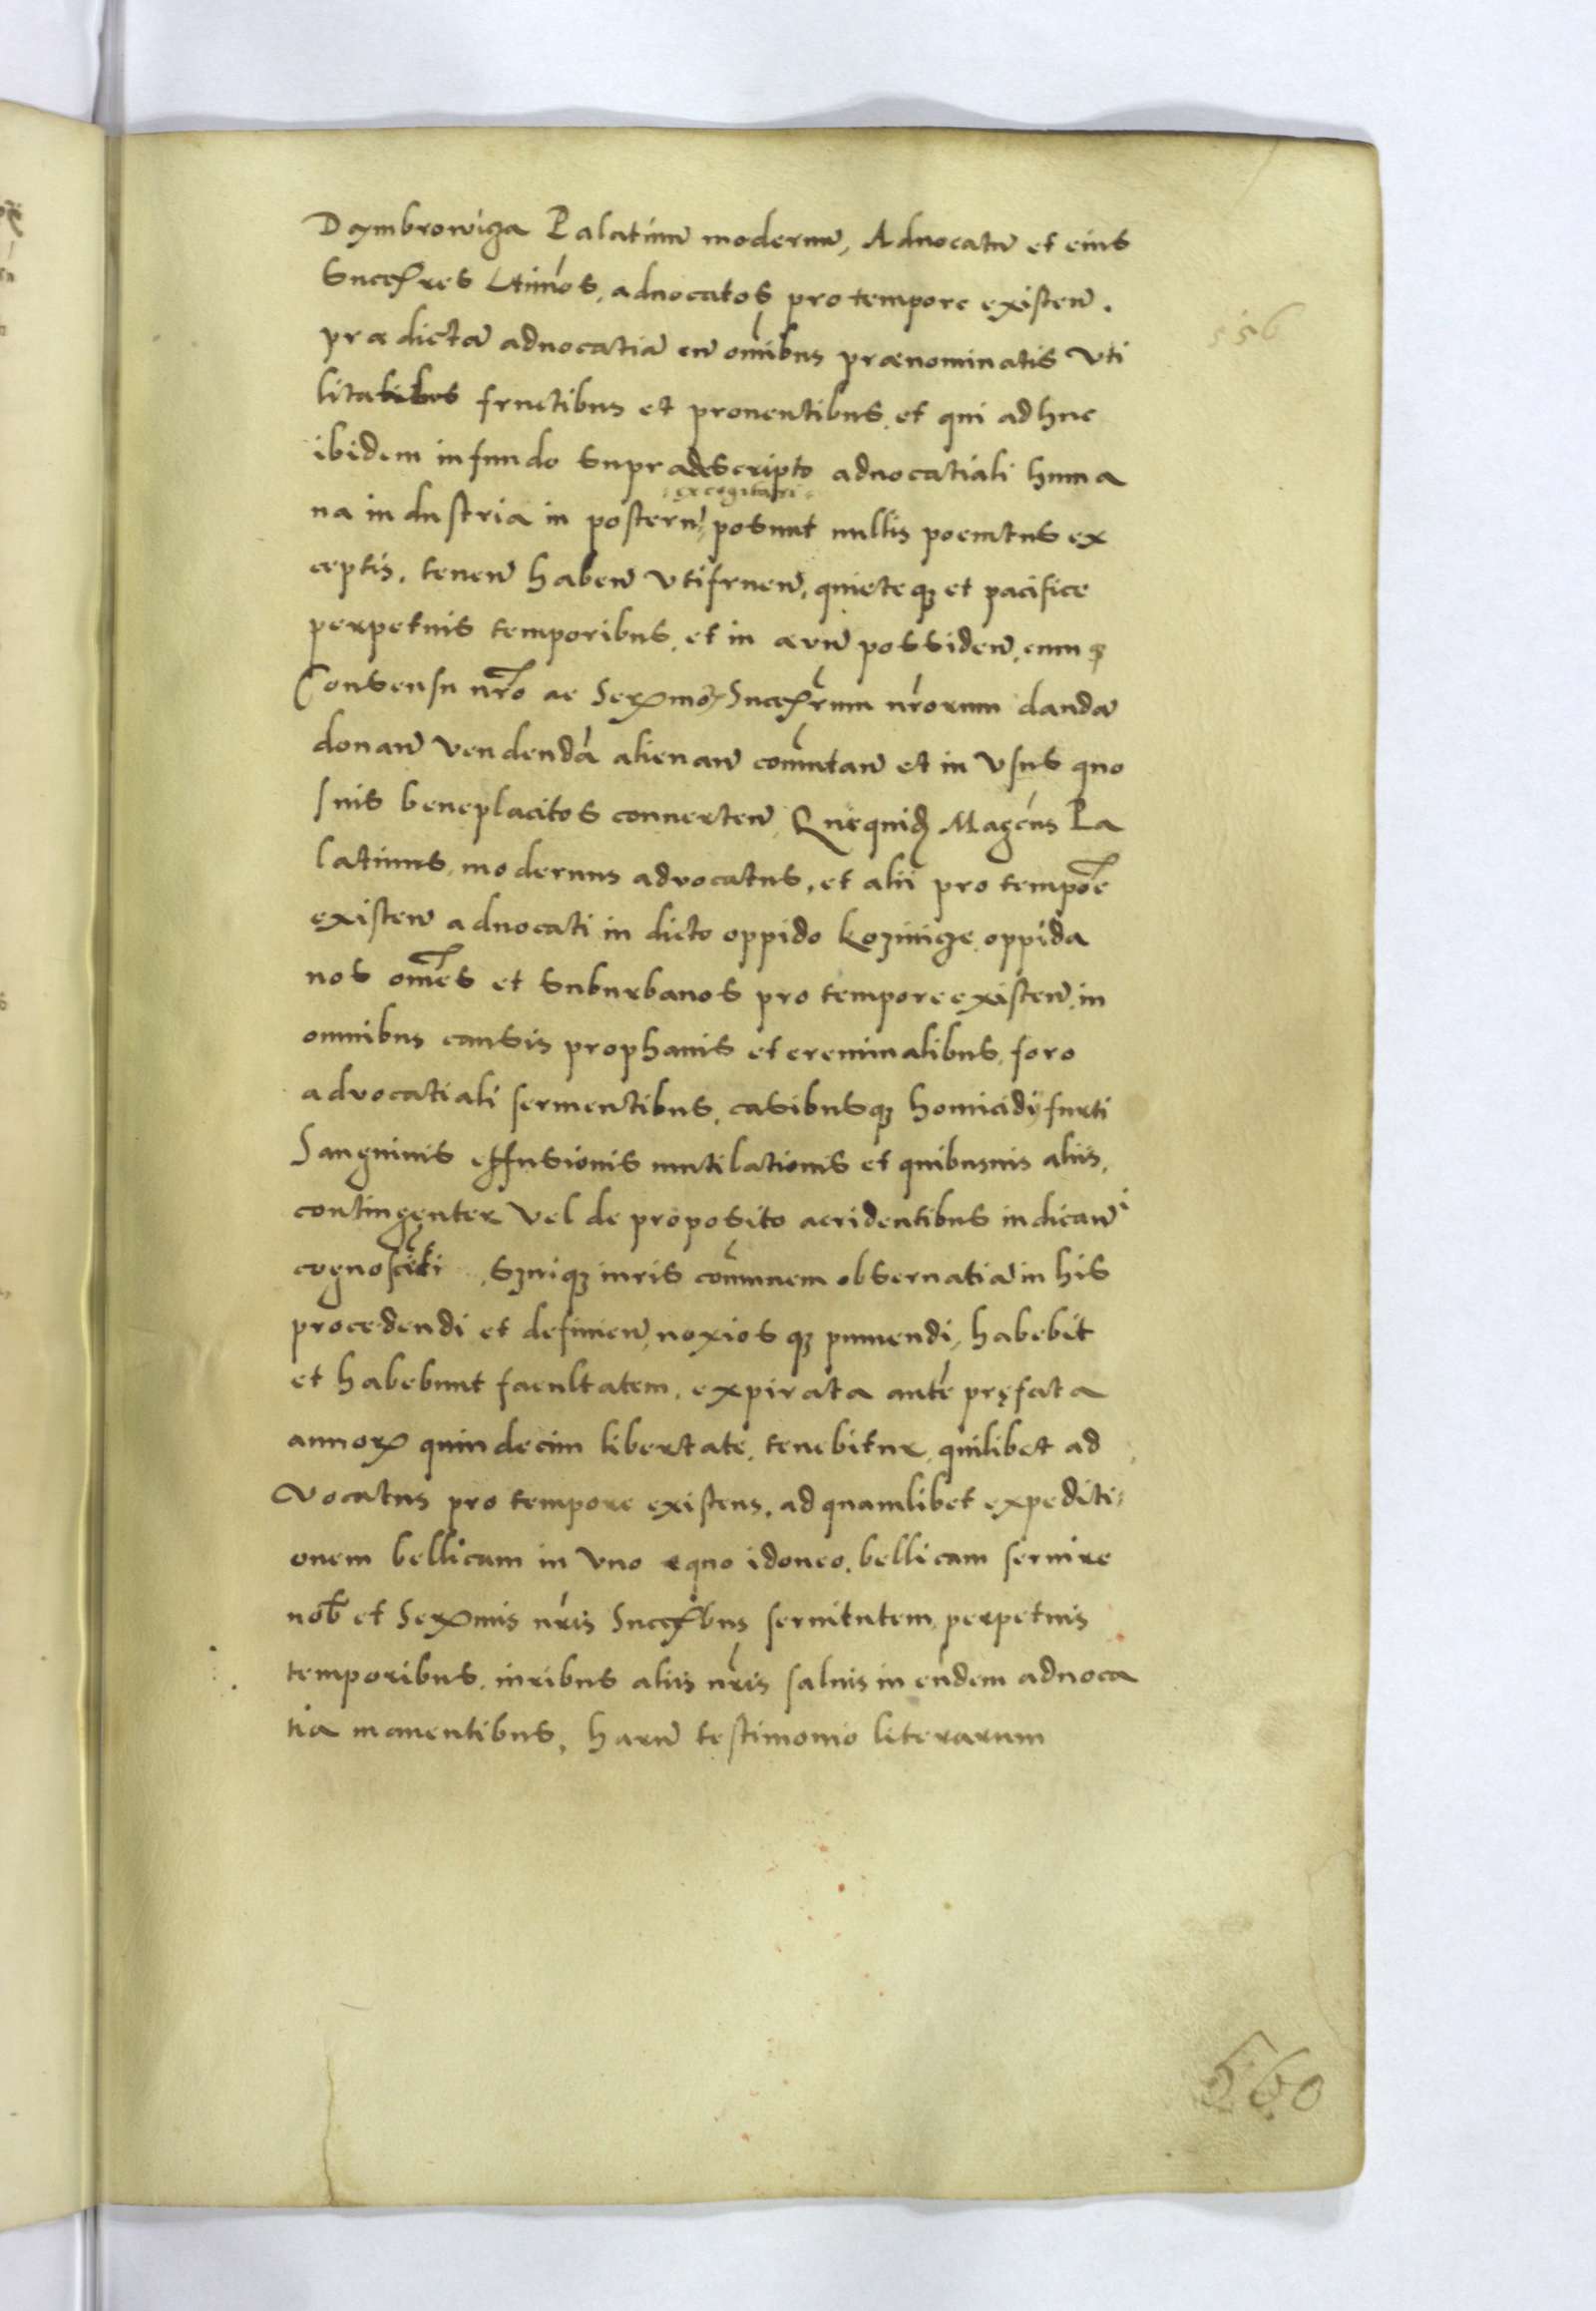 Dąmbrowicza Palatinū modernū, Aduocatū et eius
Succeſſres Ltimos, aduocatos pro tempore existen̄.
prædictā aduocatiā cū om̄ibus prænominatis vti
litatibus fructibus et prouentibus, et qui adhuc
ibidem in fundo supradescripto aduocatiali huma
excogitari
na industria in posterū possunt nullis poenitus ex
ceptis, tenen̄ haben̄ vtifruen̄, quieteqʒ et pacifice
perpetuis temporibus, et in ævū possiden̄, cumqʒ
Consensu nr̄o ac Serᵐoꝝ Succeſſrum nr̄orum dandā
donan̄ vendendā alienan̄ com̄utan̄ et in vsus quo
suis beneplacitos conuerten̄, Quiquidē Magcūs Pa
latinus, modernus advocatus, et alii pro tempoē
existen̄ aduocati in dicto oppido kozinicze, oppida
nos om̄es et suburbanos pro tempore existen̄, in
omnibus causis prophanis et creminalibus, foro
advocatiali seruientibus, casibusqʒ homicidy furti
Sanguinis effusionis mutilationis et quibusuis aliis,
contingenter vel de proposito accidentibus iudican̄i
cognosciti suiqʒ iuris com̄unem obseruatiā in his
procedendi et definien̄, noxiosqʒ puniendi, habebit
et habebunt facultatem, expirata aute pręfata
annoꝝ quindecim libertate, tenebitur, quilibet ad
vocatus pro tempore existens, ad quamlibet expediti-
onem bellicam in vno equo idoneo, bellicam seruire
nob̄ et Serᵐis nr̄is Succeſſbus seruitutem, perpetuis
temporibus, iuribus aliis nr̄is saluis in eādem aduoca
tia manentibus, harū testimonio literarum
556
560